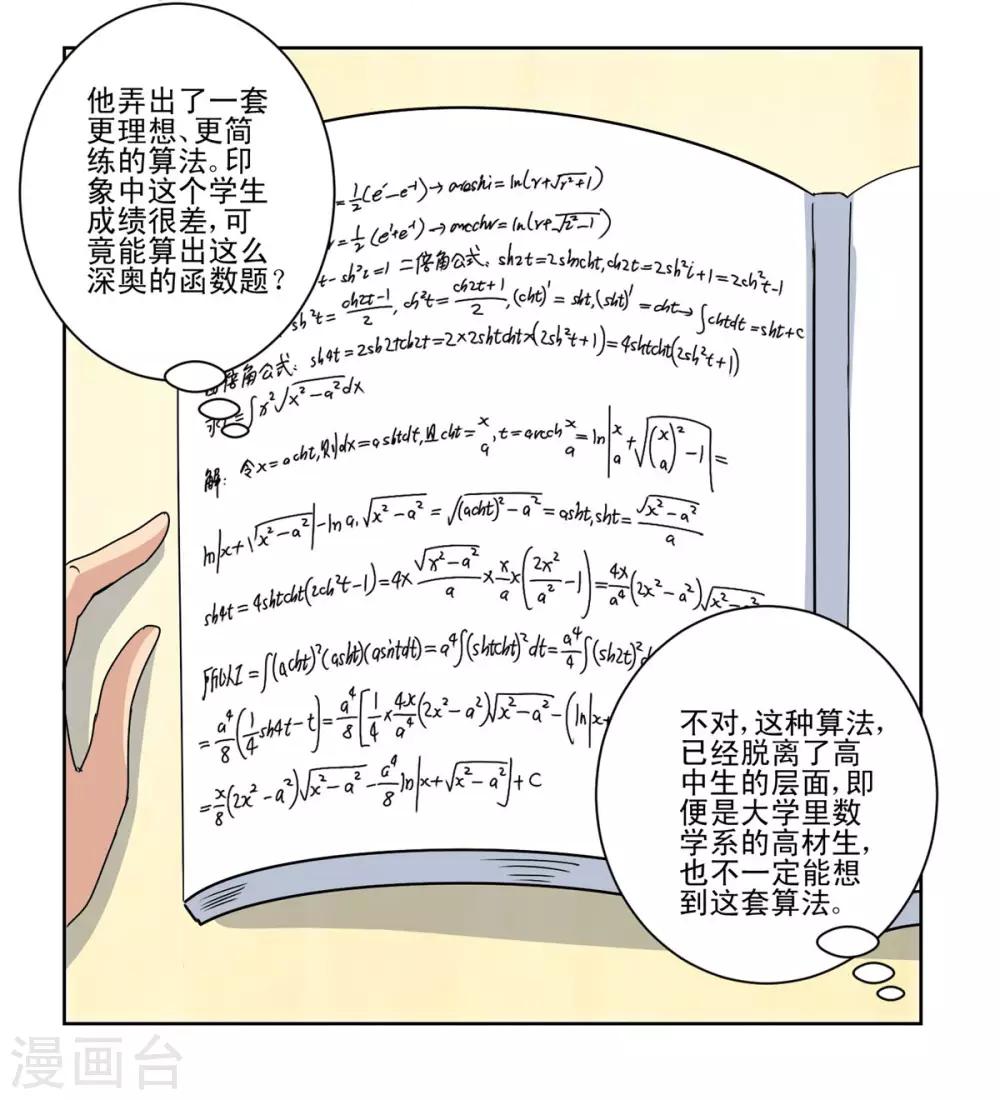 他弄出了一套
更理想、更简
练的算法。印
象中这个学生
成绩很差,可
竟能算出这么
深奥的函数题?
=½(eʳ-e⁻¹)→arashi=ln(r+√r²+1)
=½(e¹+e⁻¹)→arcchr=ln(r+√z²-1)
t-sh²t=1 二倍角公式:sh2t=2shtcht,ch2t=2sh²i+1=2ch²t-1
sh²t=(ch2t-1)/2, ch²t=(ch2t+1)/2, (cht)'=sht,(sht)'=cht→∫chtdt=sht+c
倍角公式:sh4t=2sh2tch2t=2×2shtcht×(2sh²t+1)=4shtcht(2sh²t+1)
∫x²√x²-a²dx
解:令x=acht,则dx=ashtdt,且cht=x/a,t=arcch x/a=ln|x/a+√(x/a)²-1|=
ln|x+√x²-a²|-lna,√x²-a²=√(acht)²-a²=asht,sht=√x²-a²/a
sh4t=4shtcht(2ch²t-1)=4×√x²-a²/a×x/a×(2x²/a²-1)=4x/a⁴(2x²-a²)√x²-a²
所以I=∫(acht)²(asht)(asintdt)=a⁴∫(shtcht)²dt=a⁴/4∫(sh2t)²d
=a⁴/8(¼sh4t-t)=a⁴/8[¼×4x/a⁴(2x²-a²)√x²-a²-(ln|x+
=x/8(2x²-a²)√x²-a²-a⁴/8ln|x+√x²-a²|+C
不对,这种算法,
已经脱离了高
中生的层面,即
便是大学里数
学系的高材生,
也不一定能想
到这套算法。
漫画台